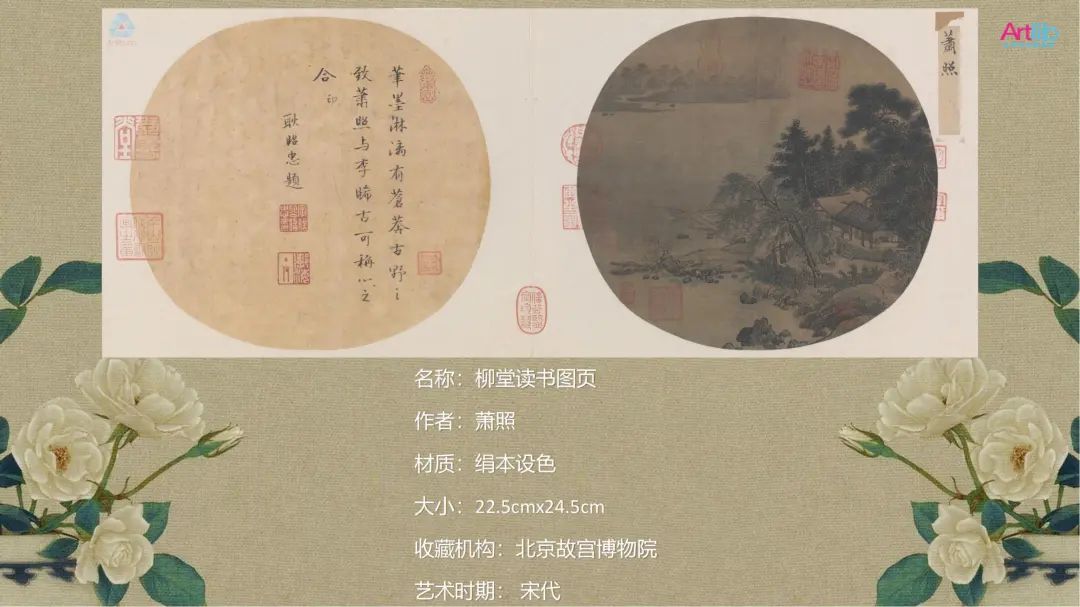 筆墨淋漓有蒼莽古野之
致蕭照与李晞古可稱心之
合
印
耿昭忠題
蕭照
ArtBip
名称：柳堂读书图页
作者：萧照
材质：绢本设色
大小：22.5cmx24.5cm
收藏机构：北京故宫博物院
艺术时期：宋代